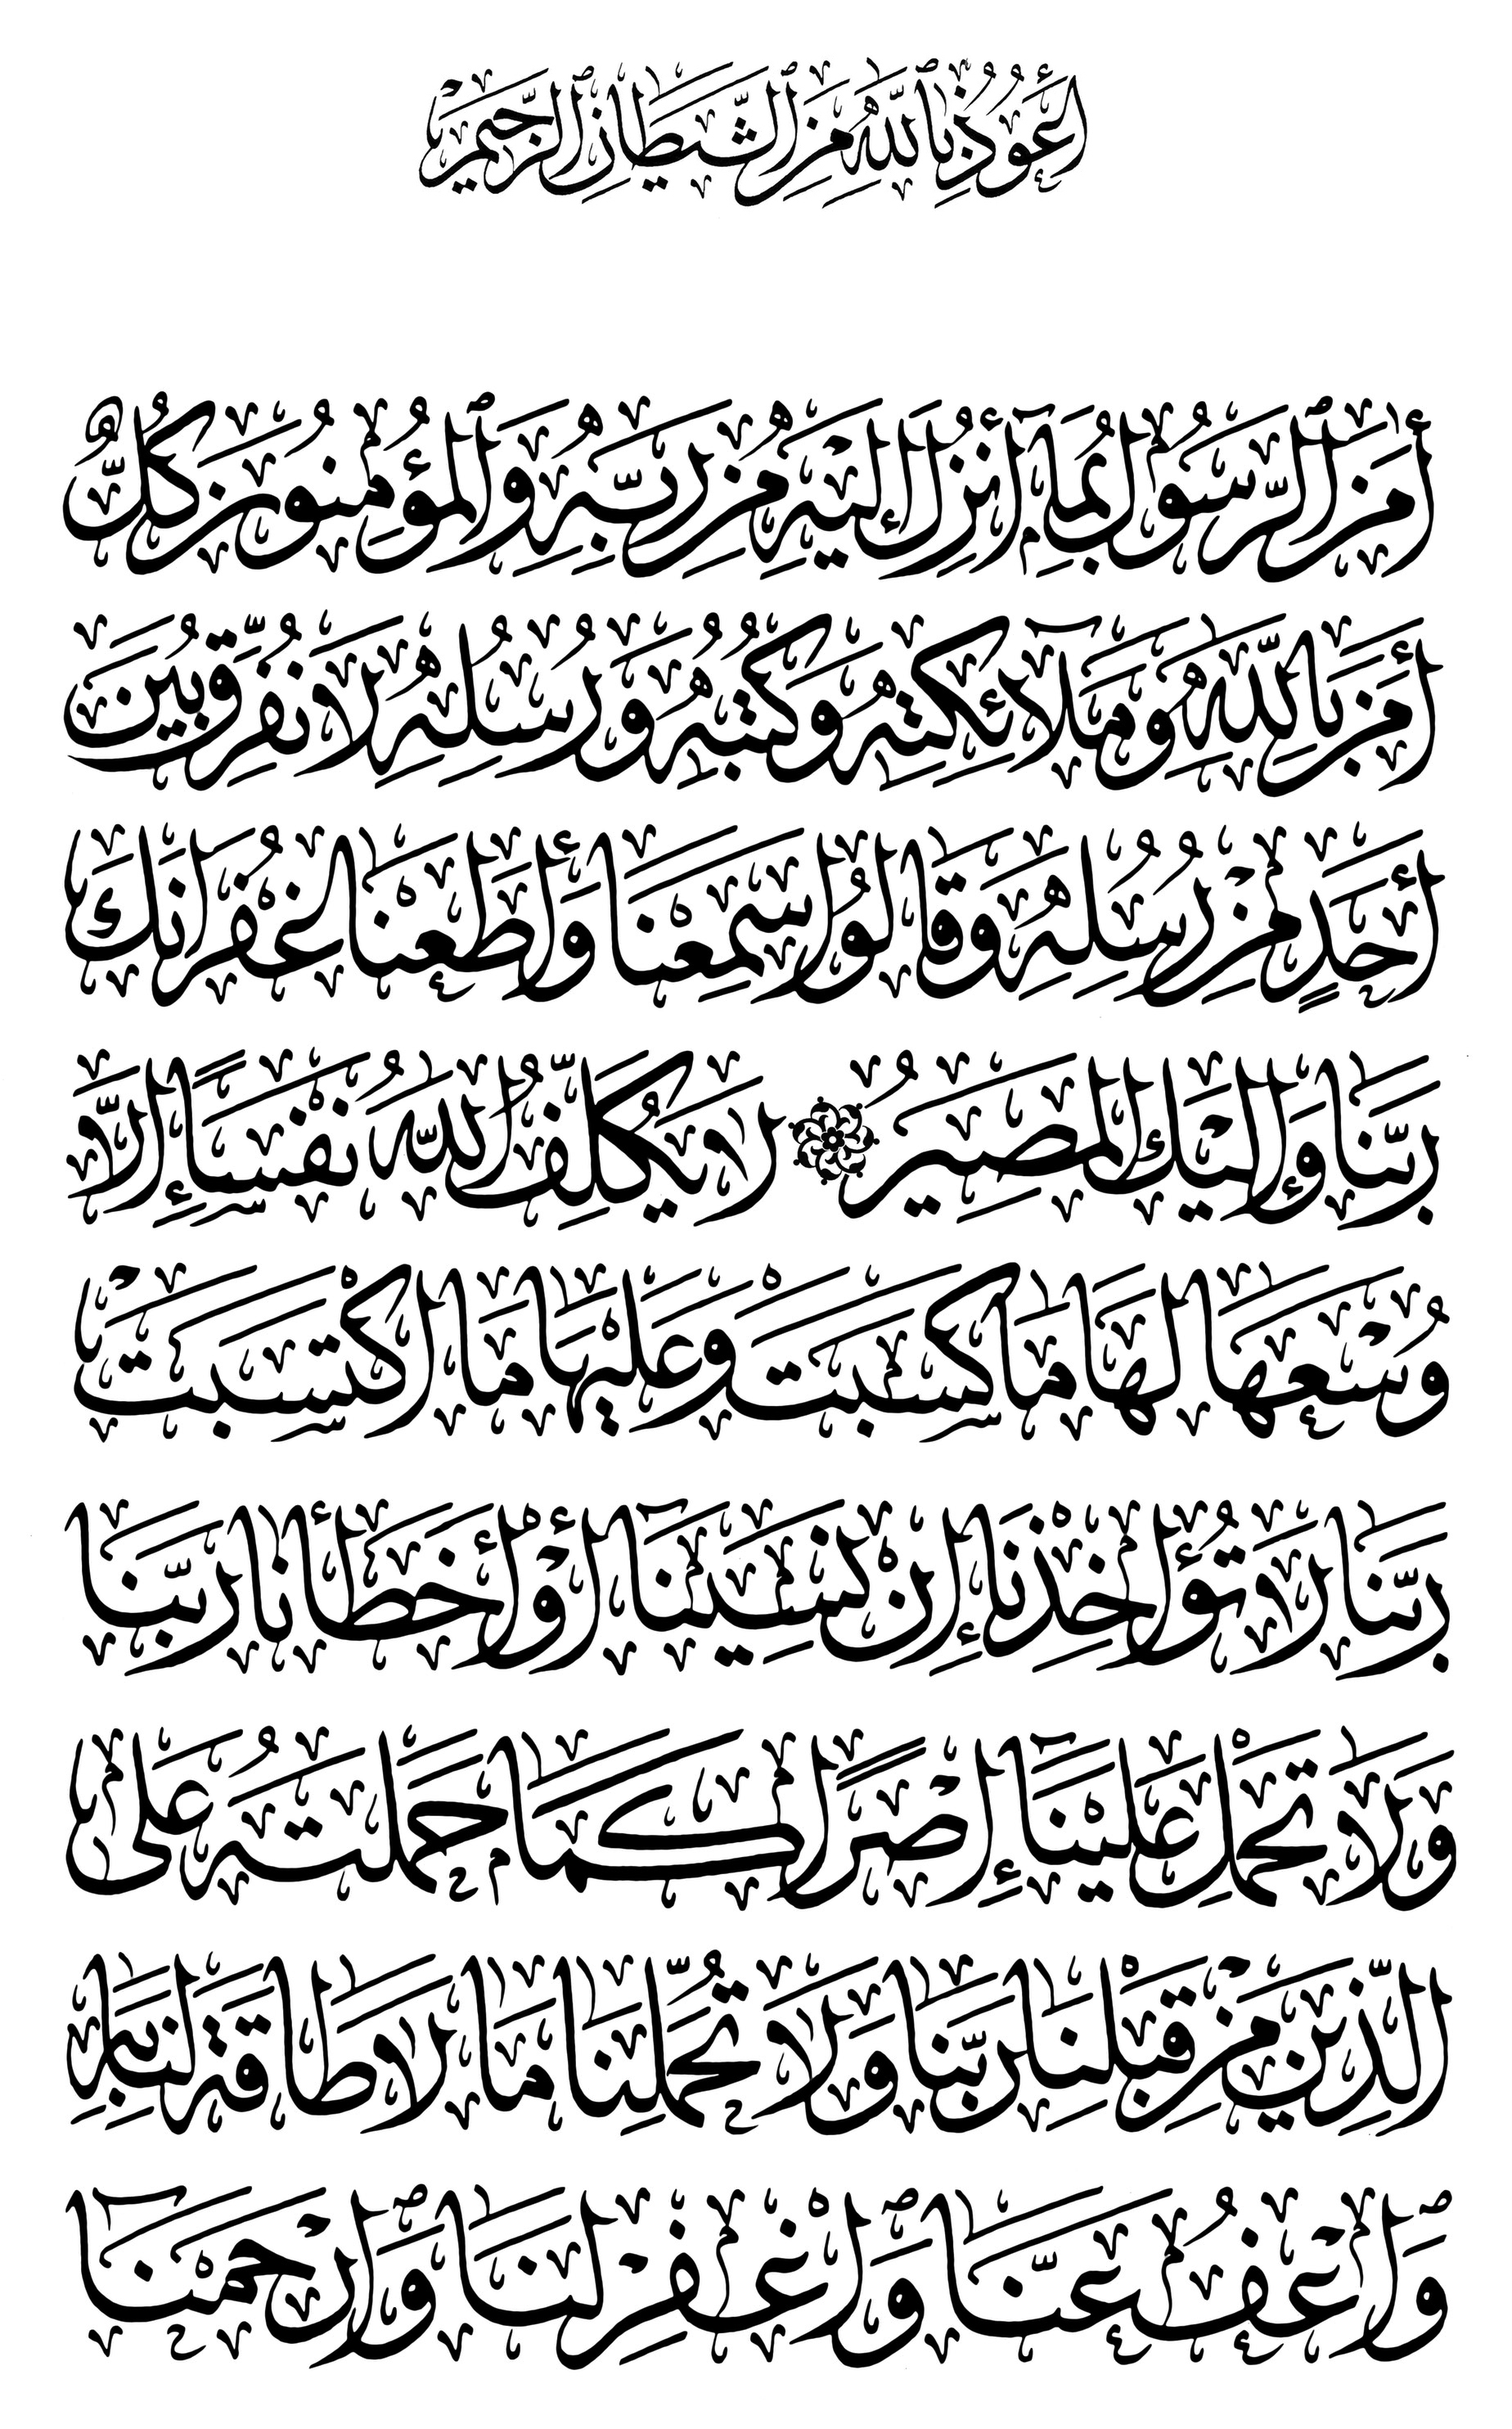 أَعُوذُ بِٱللَّهِ مِنَ ٱلشَّيْطَانِ ٱلرَّجِيمِ
أٰمَنَ ٱلرَّسُولُ بِمَآ أُنْزِلَ إِلَيْهِ مِنْ رَبِّهِ وَٱلْمُؤْمِنُونَ كُلٌّ
أٰمَنَ بِاللَّهِ وَمَلَآئِكَتِهِ وَكُتُبِهِ وَرُسُلِهِ لَا نُفَرِّقُ بَيْنَ
أَحَدٍ مِنْ رُسُلِهِ وَقَالُوا سَمِعْنَا وَأَطَعْنَا غُفْرَانَكَ
رَبَّنَا وَإِلَيْكَ الْمَصِيرُ لَا يُكَلِّفُ اللَّهُ نَفْسًا إِلَّا
وُسْعَهَا لَهَا مَا كَسَبَتْ وَعَلَيْهَا مَا اكْتَسَبَتْ
رَبَّنَا لَا تُؤَاخِذْنَا إِنْ نَسِينَآ أَوْ أَخْطَأْنَا رَبَّنَا
وَلَا تَحْمِلْ عَلَيْنَآ إِصْرًا كَمَا حَمَلْتَهُ عَلَى
الَّذِينَ مِنْ قَبْلِنَا رَبَّنَا وَلَا تُحَمِّلْنَا مَا لَا طَاقَةَ لَنَا بِهِ
وَٱعْفُ عَنَّا وَٱغْفِرْ لَنَا وَٱرْحَمْنَآ